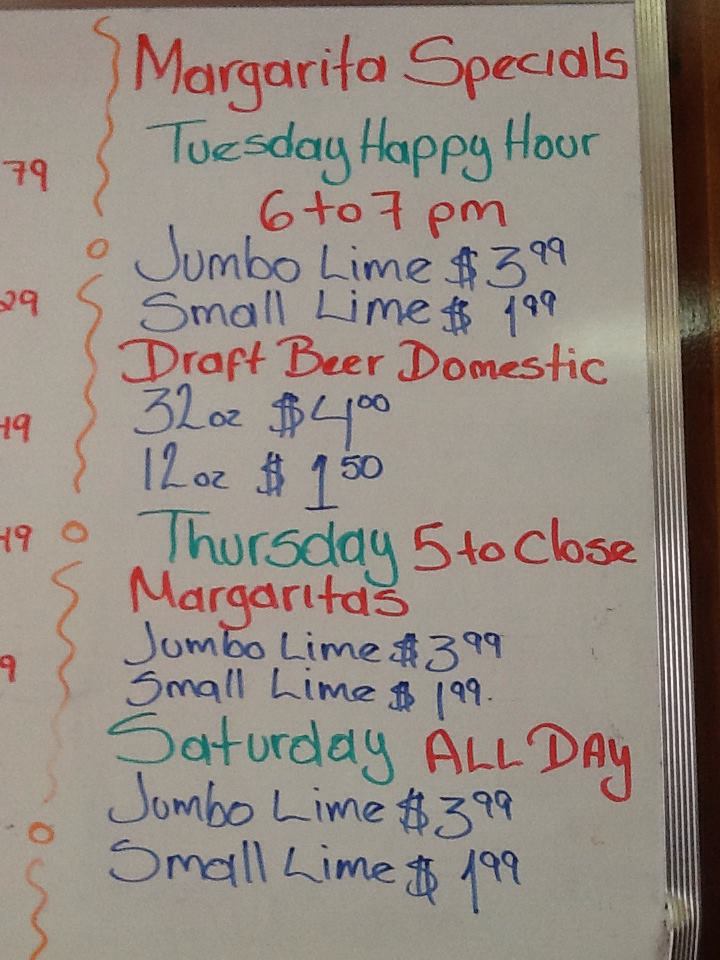 Margarita Specials
Tuesday Happy Hour
6 to 7 pm
79
Jumbo Lime $3.99
Small Lime $1.99
29
Draft Beer Domestic
32oz $4.00
49
12oz $1.50
Thursday 5 to Close
49
Margaritas
Jumbo Lime $3.99
9
Small Lime $1.99.
Saturday ALL DAY
Jumbo Lime $3.99
Small Lime $1.99